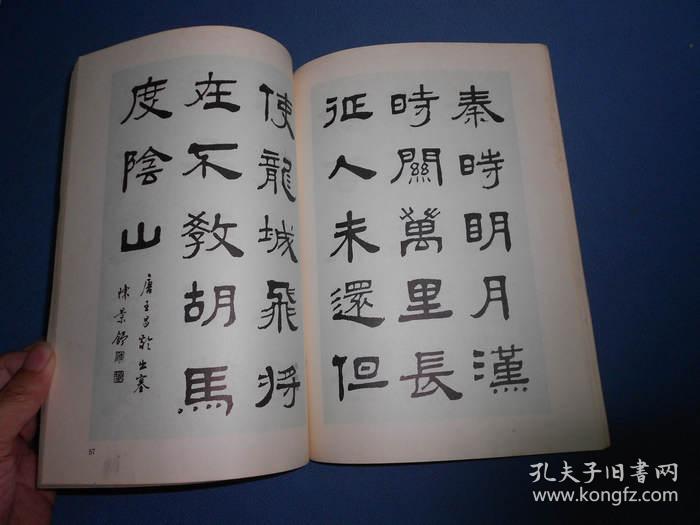 秦時明月漢
時關萬里長
征人未還但
使龍城飛將
在不教胡馬
度陰山
唐王昌齡出塞
陳景舒
57
孔夫子旧书网
www.kongfz.com